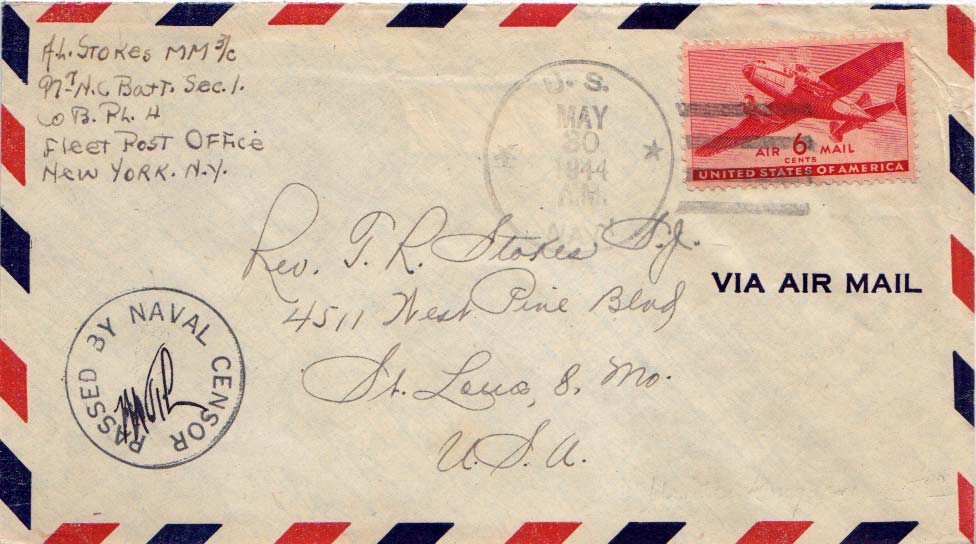 A.L. Stokes MM 3/c
97th N.C Batt. Sec. 1.
Co B. PL. 4
Fleet Post Office
New York. N.Y.
U. S.
MAY
30
1944
A.M.
NAVY
AIR 6 MAIL
CENTS
UNITED STATES OF AMERICA
Rev. T. R. Stokes S.J.
4511 West Pine Blvd
St. Louis, 8. Mo.
U. S. A.
VIA AIR MAIL
PASSED BY NAVAL CENSOR